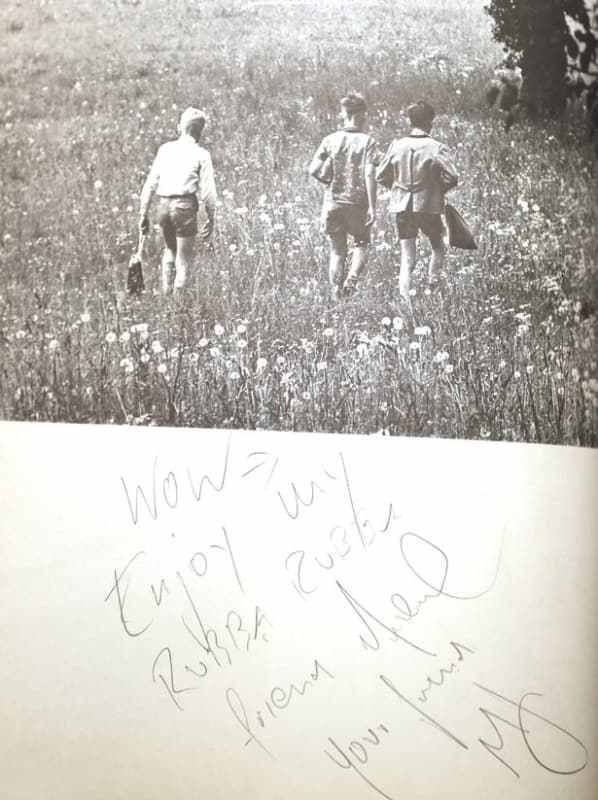 WOW =
Enjoy my
RUBBA RUBBA
friend
your friend